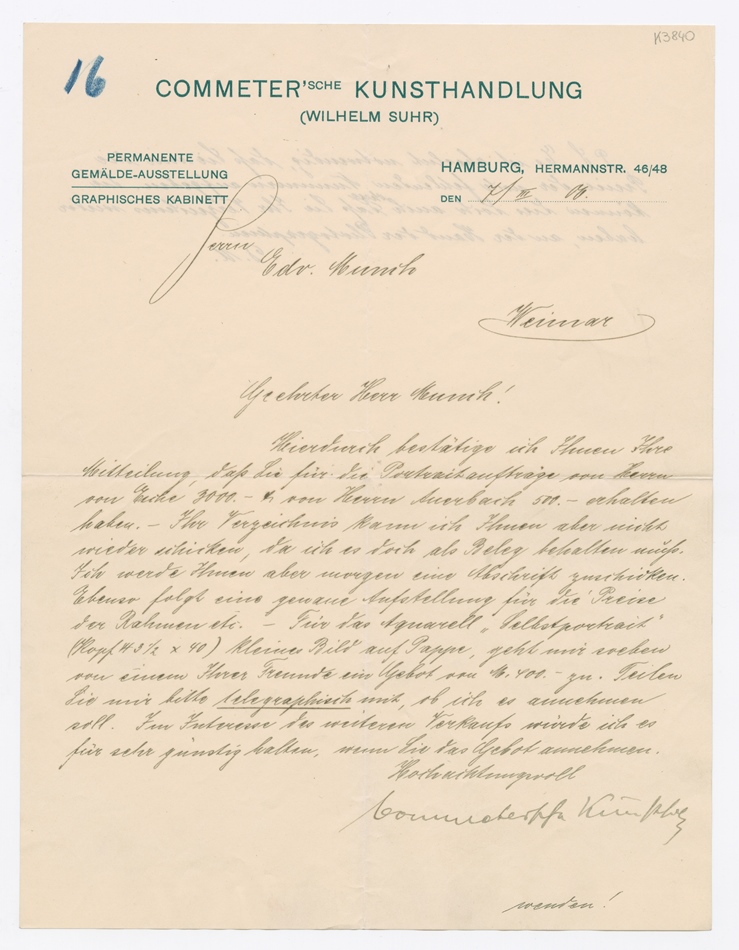 K3840
16
COMMETER'SCHE KUNSTHANDLUNG
(WILHELM SUHR)
PERMANENTE
GEMÄLDE-AUSSTELLUNG
GRAPHISCHES KABINETT
HAMBURG, HERMANNSTR. 46/48
DEN 7/III 06.
Herrn
Edv. Munch
Weimar
Geehrter Herr Munch!
Hierdurch bestätige ich Ihnen Ihre
Mitteilung, daß Sie für die Portraitaufträge von Herrn
von Esche 3000.- & von Herrn Auerbach 500.- erhalten
haben. - Ihr Verzeichnis kann ich Ihnen aber nicht
wieder schicken, da ich es doch als Beleg behalten muß.
Ich werde Ihnen aber morgen eine Abschrift zuschicken.
Ebenso folgt eine genaue Aufstellung für die Preise
der Rahmen etc. - Für das Aquarell „Selbstportrait"
(Kopf 43½ x 40) kleines Bild auf Pappe, geht mir soeben
von einem Ihrer Freunde ein Gebot von M. 400.- zu. Teilen
Sie mir bitte telegraphisch mit, ob ich es annehmen
soll. Im Interesse des weiteren Verkaufs würde ich es
für sehr günstig halten, wenn Sie das Gebot annehmen.
Hochachtungsvoll
wenden!